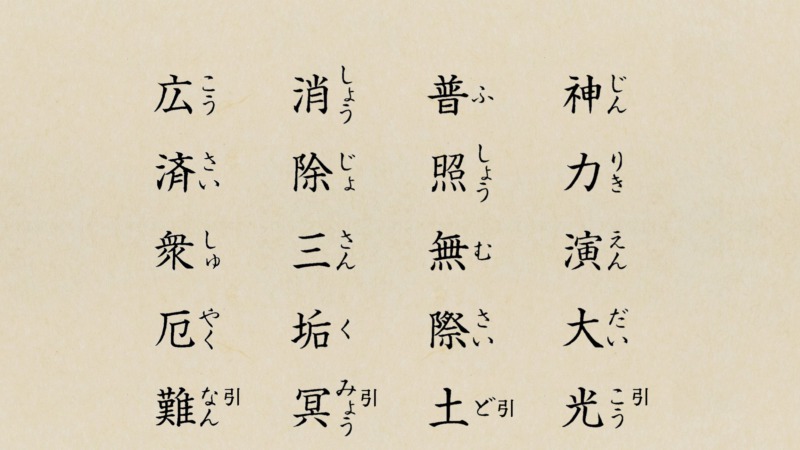 神力演大光
じんりきえんだいこう引
普照無際土
ふしょうむさいど引
消除三垢冥
しょうじょさんくみょう引
広済衆厄難
こうさいしゅやくなん引